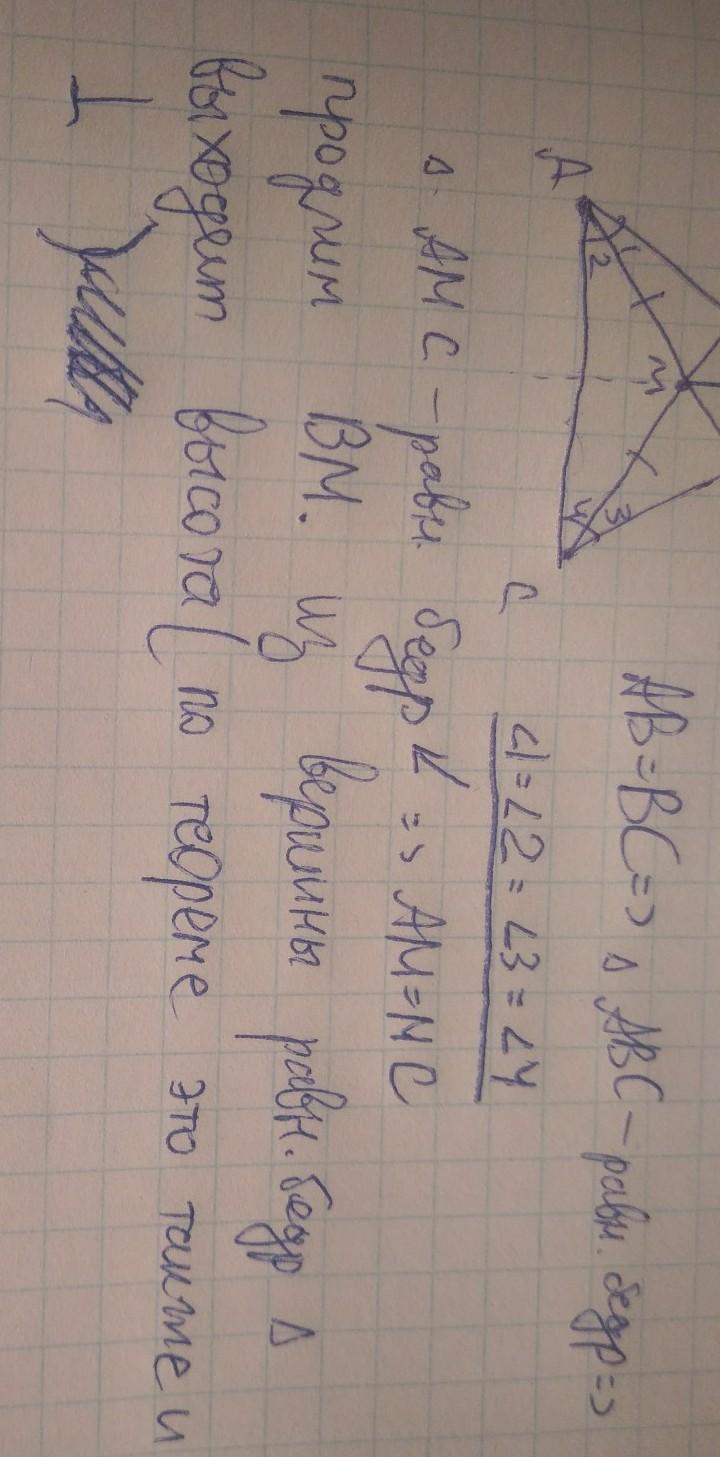 AB=BC=> ▵ ABC – равн. бедр=>
A
1
2
M
3
4
C
∠1=∠2=∠3=∠4
▵ AMC – равн. бедр => AM=MC
продлим BM. из вершины равн. бедр ▵
выходит высота (по теореме это также и
⊥)